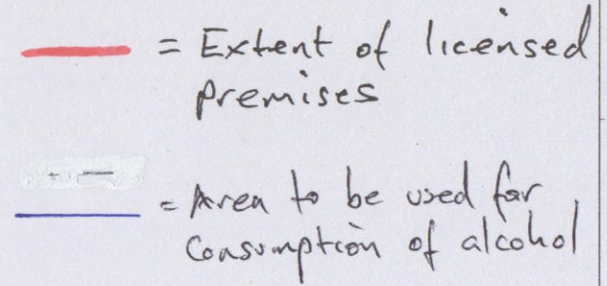 = Extent of licensed
premises
= Area to be used for
Consumption of alcohol